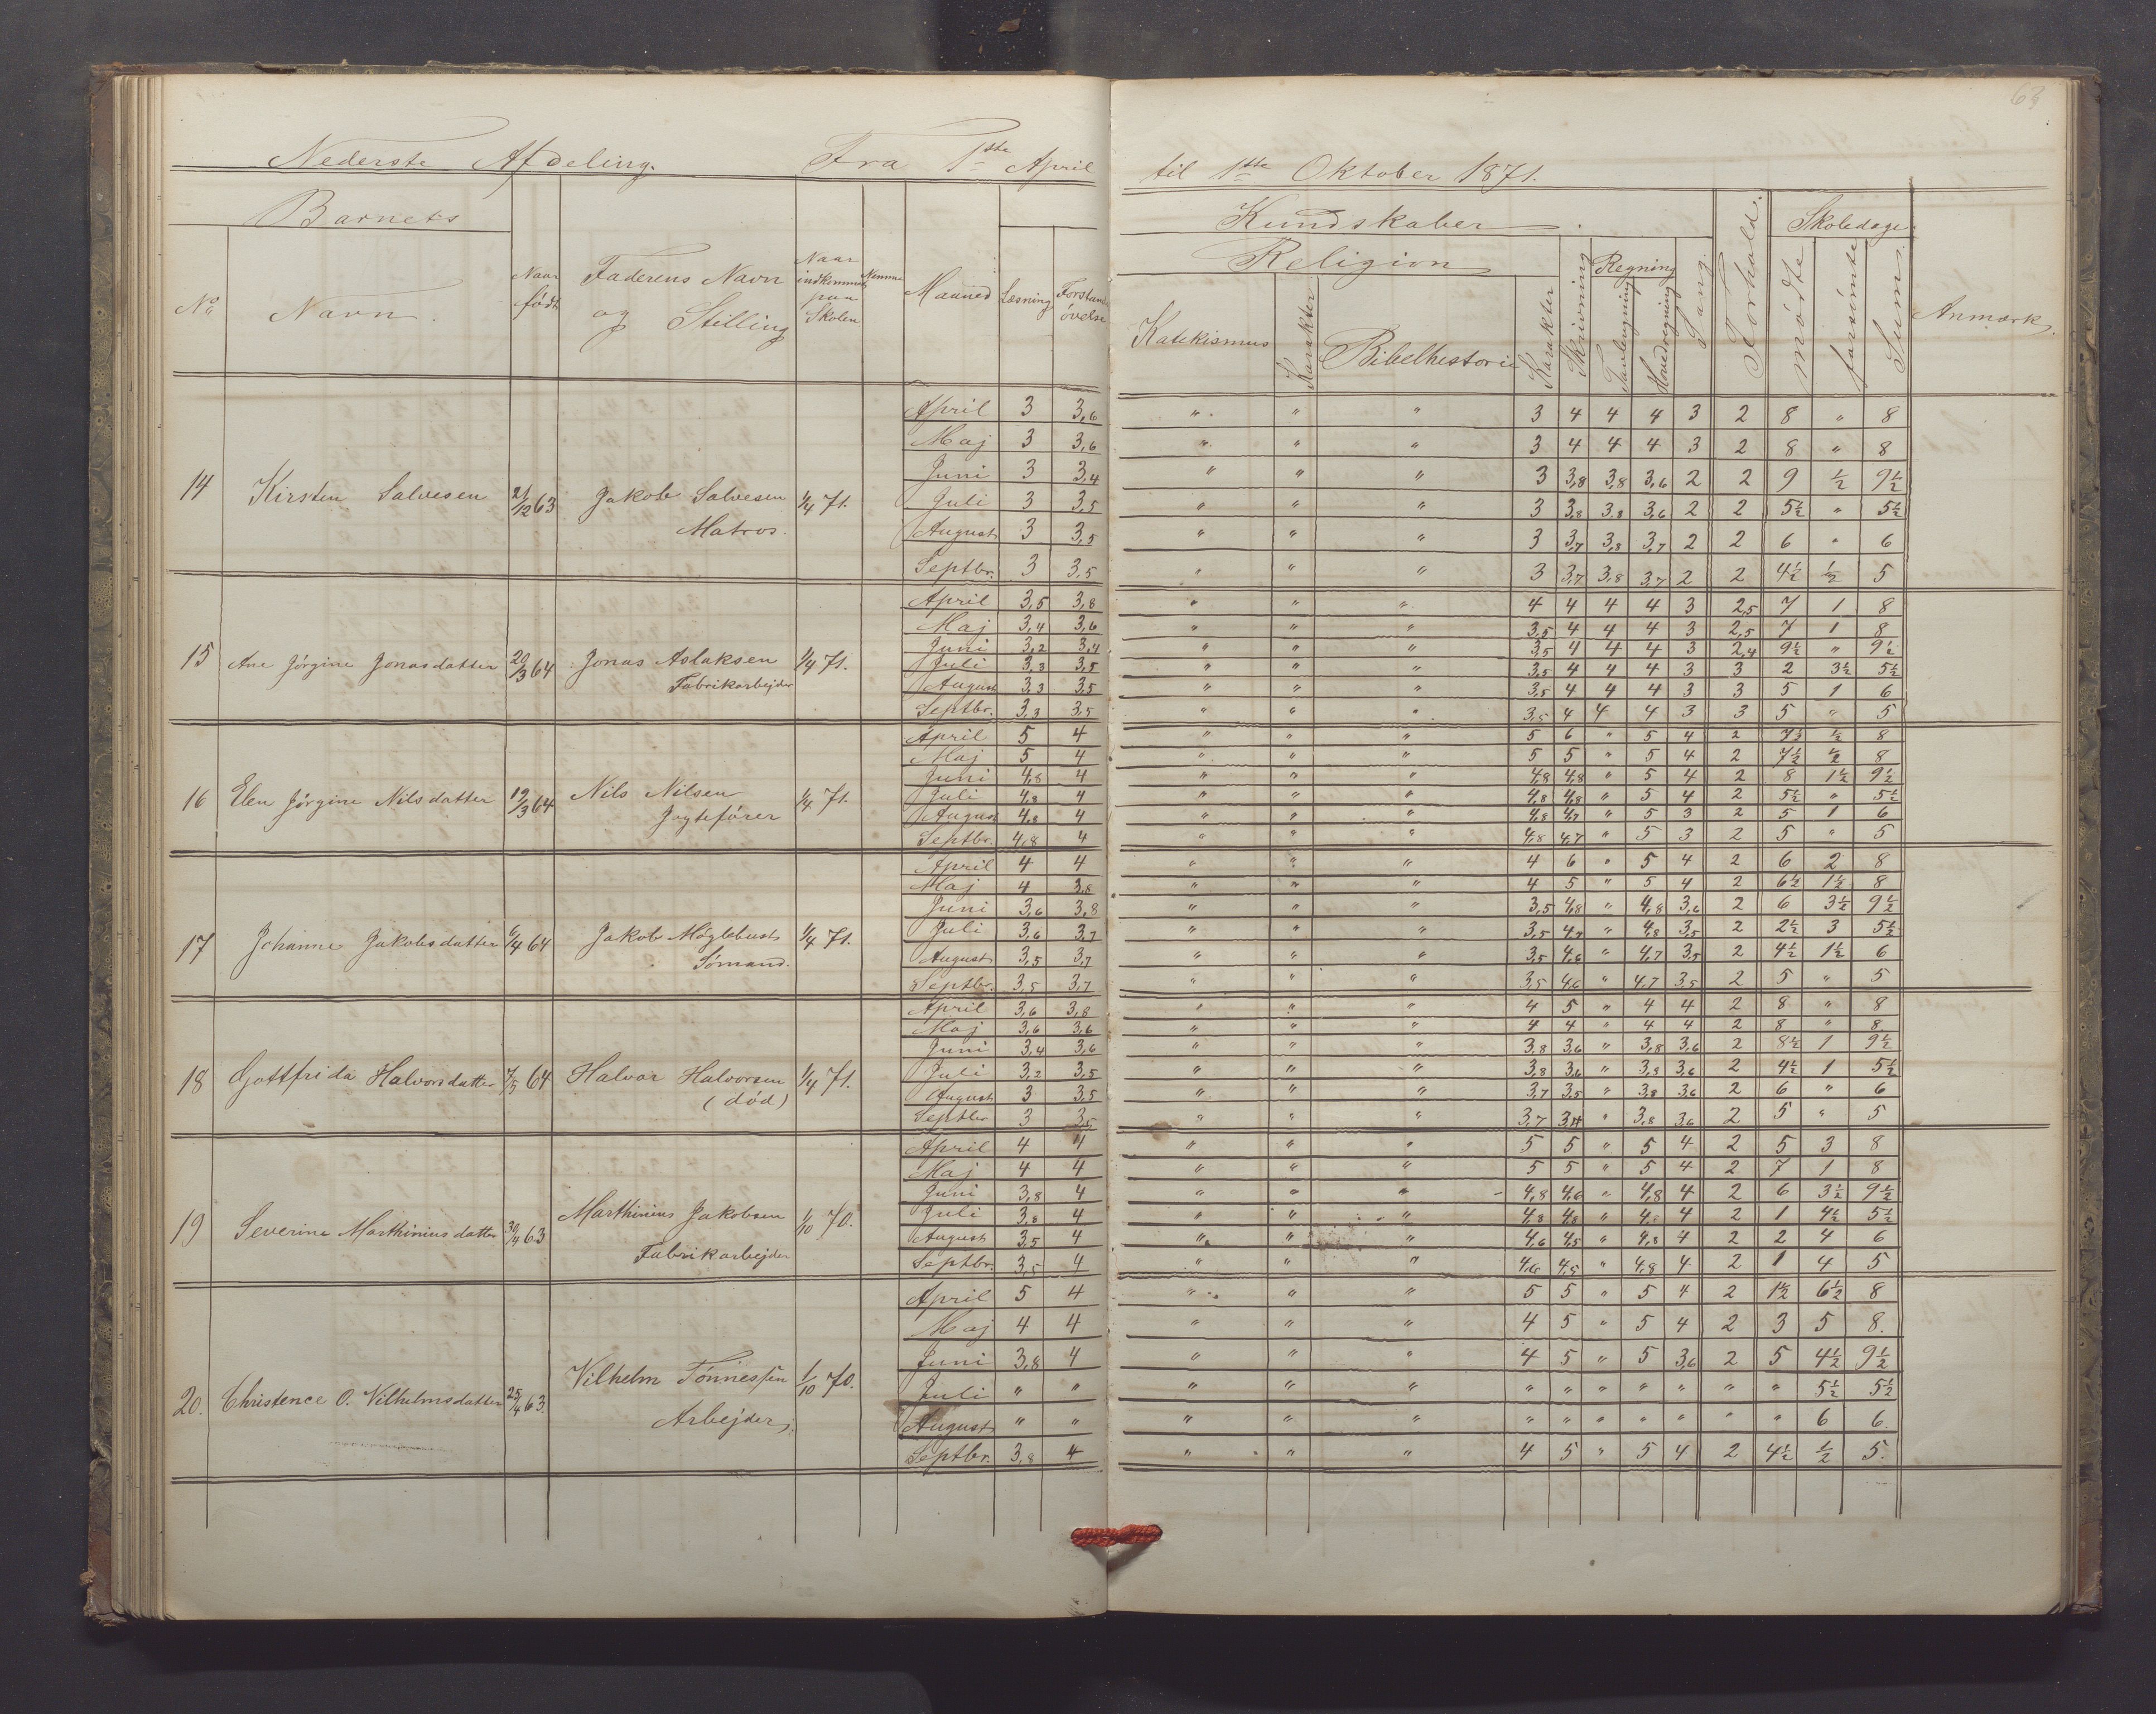 63
Nederste Afdeling. Fra 1ste April til 1ste Oktober 1871.
Barnets Kundskaber Forhold. Skoledage.
No Navn. Naar født Faderens Navn og Stilling Naar indkommet paa Skolen Nemme Maaned Læsning Forstands øvelse Religion Katekismus Karakter Bibelhistorie Karakter Skrivning Regning Tavleregning Hovedregning Sang. mødte forsømte Sum. Anmærk.
14 Kirsten Salvesen 21/12 63 Jakob Salvesen Matros. 1/4 71.
April 3 3,6 " " " 3 4 4 4 3 2 8 " 8
Maj 3 3,6 " " " 3 4 4 4 3 2 8 " 8
Juni 3 3,4 " " " 3 3,8 3,8 3,6 2 2 9 ½ 9½
Juli 3 3,5 " " " 3 3,8 3,8 3,6 2 2 5½ " 5½
August 3 3,5 " " " 3 3,7 3,8 3,7 2 2 6 " 6
Septbr. 3 3,5 " " " 3 3,7 3,8 3,7 2 2 4½ ½ 5
15 Ane Jørgine Jonasdatter 20/3 64 Jonas Aslaksen Fabrikarbejder 1/4 71.
April 3,5 3,8 " " " 4 4 4 4 3 2,5 7 1 8
Maj 3,4 3,6 " " " 3,5 4 4 4 3 2,5 7 1 8
Juni 3,2 3,4 " " " 3,5 4 4 4 3 2,4 9½ " 9½
Juli 3,3 3,5 " " " 3,5 4 4 4 3 3 2 3½ 5½
August 3,3 3,5 " " " 3,5 4 4 4 3 3 5 1 6
Septbr. 3,3 3,5 " " " 3,5 4 4 4 3 3 5 " 5
16 Elen Jørgine Nilsdatter 19/3 64 Nils Nilsen Jagtefører 1/4 71.
April 5 4 " " " 5 6 " 5 4 2 7½ ½ 8
Maj 5 4 " " " 5 5 " 5 4 2 7½ ½ 8
Juni 4,8 4 " " " 4,8 4,8 " 5 4 2 8 1½ 9½
Juli 4,8 4 " " " 4,8 4,8 " 5 4 2 5½ " 5½
August 4,8 4 " " " 4,8 4,7 " 5 3 2 5 1 6
Septbr. 4,8 4 " " " 4,8 4,7 " 5 3 2 5 " 5
17 Johanne Jakobsdatter 6/4 64 Jakob Møglebust Sømand. 1/4 71.
April 4 4 " " " 4 6 " 5 4 2 6 2 8
Maj 4 3,8 " " " 4 5 " 5 4 2 6½ 1½ 8
Juni 3,6 3,8 " " " 3,5 4,8 " 4,8 3,6 2 6 3½ 9½
Juli 3,6 3,7 " " " 3,5 4,7 " 4,8 3,5 2 2½ 3 5½
August 3,5 3,7 " " " 3,5 4,6 " 4,7 3,5 2 4½ 1½ 6
Septbr. 3,5 3,7 " " " 3,5 4,6 " 4,7 3,5 2 5 " 5
18 Gottfrida Halvorsdatter 7/5 64 Halvor Halvorsen (død) 1/4 71.
April 3,6 3,8 " " " 4 5 " 4 4 2 8 " 8
Maj 3,6 3,6 " " " 4 4 " 4 4 2 8 " 8
Juni 3,4 3,6 " " " 3,8 3,6 " 3,8 3,6 2 8½ 1 9½
Juli 3,2 3,5 " " " 3,8 3,6 " 3,8 3,6 2 4½ 1 5½
August 3 3,5 " " " 3,7 3,5 " 3,8 3,6 2 6 " 6
Septbr 3 3,5 " " " 3,7 3,4 " 3,8 3,6 2 5 " 5
19 Severine Marthiniusdatter 63 Marthinius Jakobsen Fabrikarbejder 1/10 70.
April 4 4 " " " 5 5 " 5 4 2 5 3 8
Maj 4 4 " " " 5 5 " 5 4 2 7 1 8
Juni 3,8 4 " " " 4,8 4,6 " 4,8 4 2 6 3½ 9½
Juli 3,8 4 " " " 4,8 4,8 " 4,8 4 2 1 4½ 5½
August 3,5 4 " " " 4,6 4,5 " 4,8 4 2 2 4 6
Septbr. 3,5 4 " " " 4,6 4,5 " 4,8 4 2 1 4 5
20. Christence O. Vilhelmsdatter 25/4 63. Vilhelm Tønnessen Arbejder. 1/10 70.
April 5 4 " " " 5 5 " 5 4 2 1½ 6½ 8
Maj 4 4 " " " 4 5 " 5 4 2 3 5 8.
Juni 3,8 4 " " " 4 5 " 5 3,6 2 5 4½ 9½
Juli " " " " " " " " " " " " 5½ 5½
August " " " " " " " " " " " " 6 6.
Septbr. 3,8 4 " " " 4 5 " 5 4 2 4½ ½ 5.